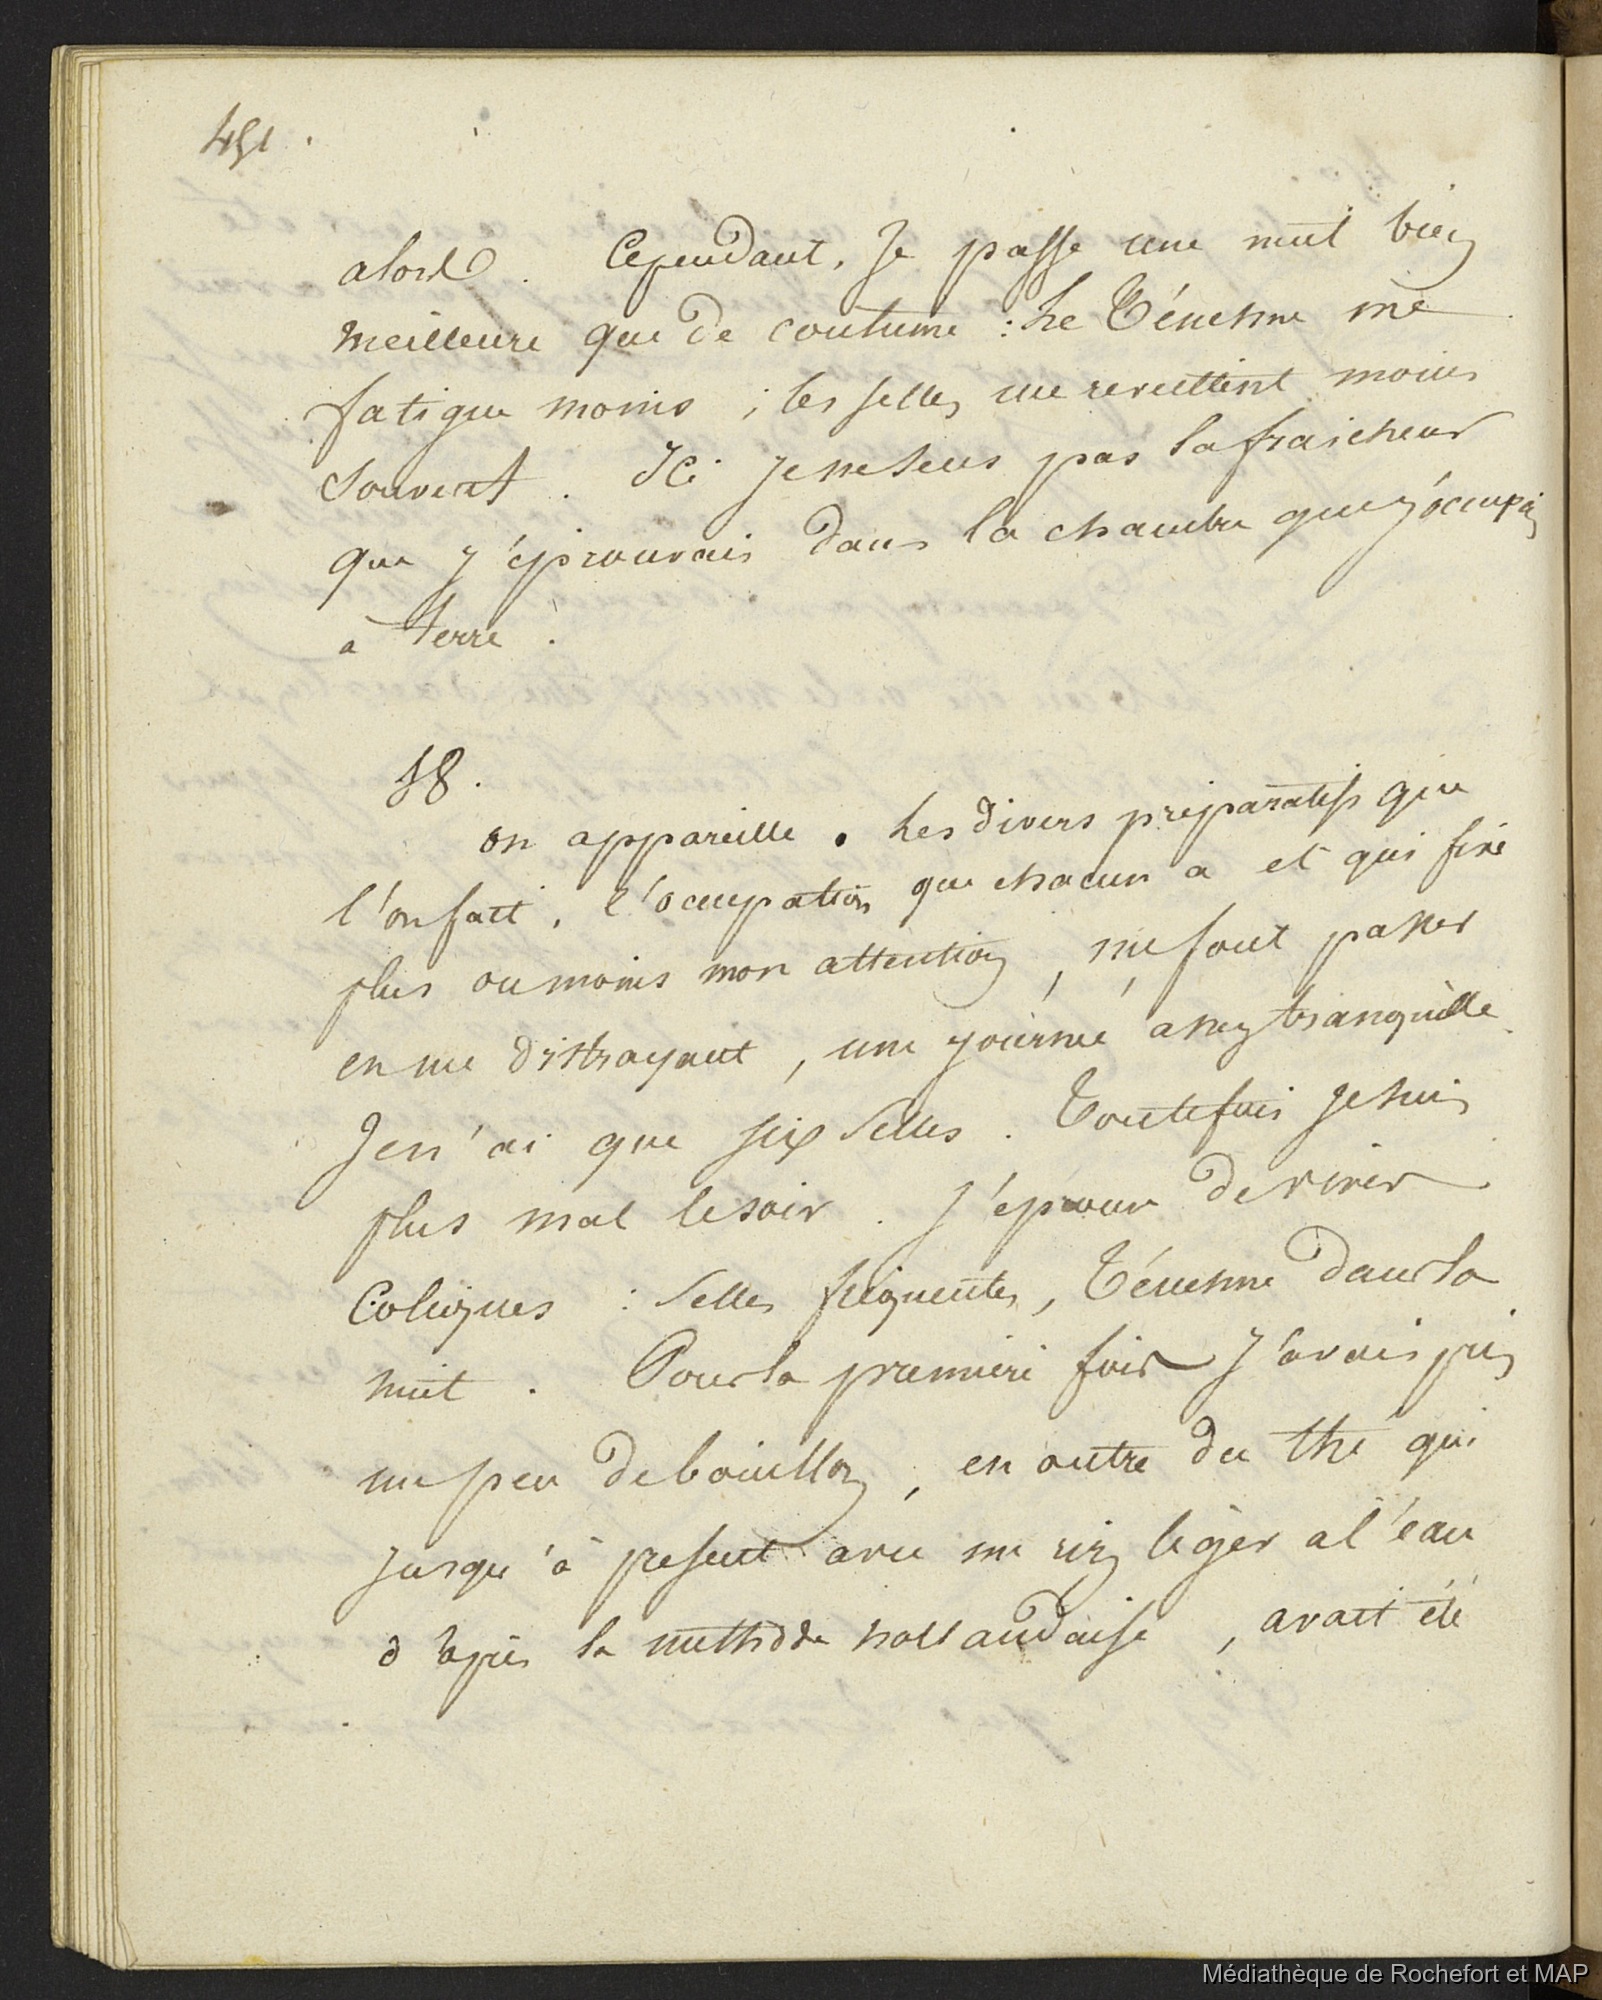 451.
abord. Cependant, je passe une nuit bien
meilleure que de coutume : Le Ténesme me
fatigue moins ; les selles me reveillent moins
souvent. Ici je ne sens pas la fraicheur
que j'éprouvais dans la chambre que j'occupais
à terre.
18.
on appareille. Les divers préparatifs que
l'on fait, l'occupation que chacun a et qui fixe
plus ou moins mon attention, me font passer
en me distrayant, une journée assez tranquille
Je n'ai que six selles. Toutefois je suis
plus mal le soir. J'éprouve de vives
Coliques : selles fréquentes, Ténesme dans la
nuit. Pour la première fois j'avais pris
un peu de bouillon, en outre du thé qui
jusqu'à présent avec un riz léger a l'eau
d'après la méthode hollandaise, avait été
Médiathèque de Rochefort et MAP